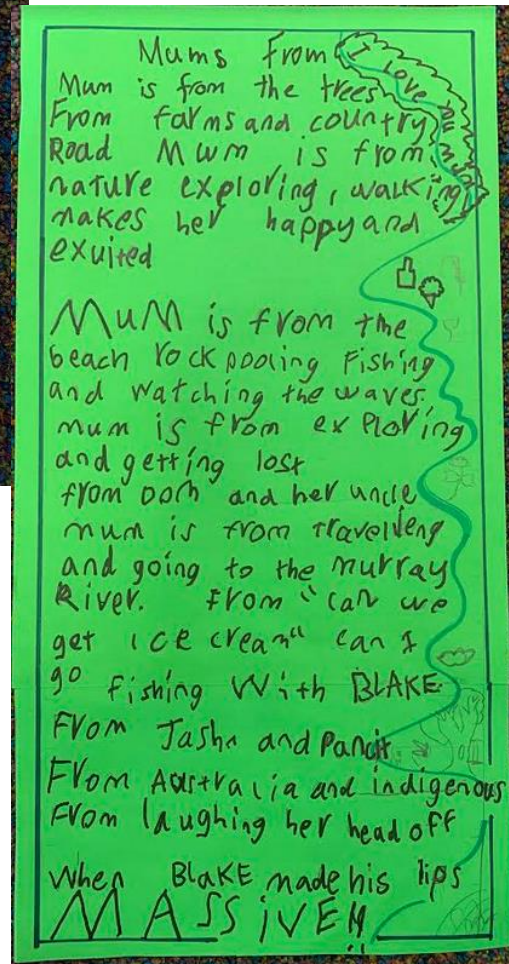 Mums From
I love you mum
Mum is from the trees
From farms and country
Road Mum is from
nature exploring, walking
makes her happy and
exuited
MuM is from the
beach rock pooling Fishing
and watching the waves.
mum is from exploring
and getting lost
from and her uncle
mum is from travelleng
and going to the murray
River. From "can we
get ice cream" can I
go fishing With BLAKE
From Tasha and
From Australia and indigenous
From laughing her head off
when BLAKE made his lips
MASSiVE!!